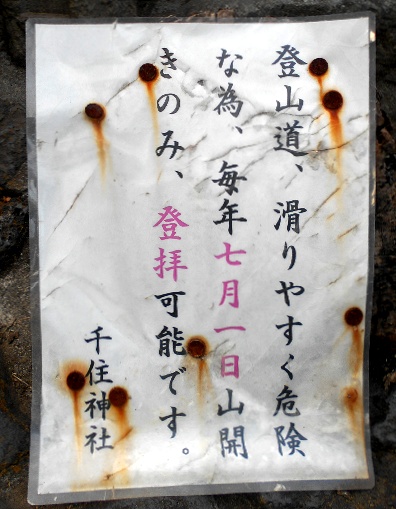 登山道、滑りやすく危険
な為、毎年七月一日山開
きのみ、登拝可能です。
千住神社